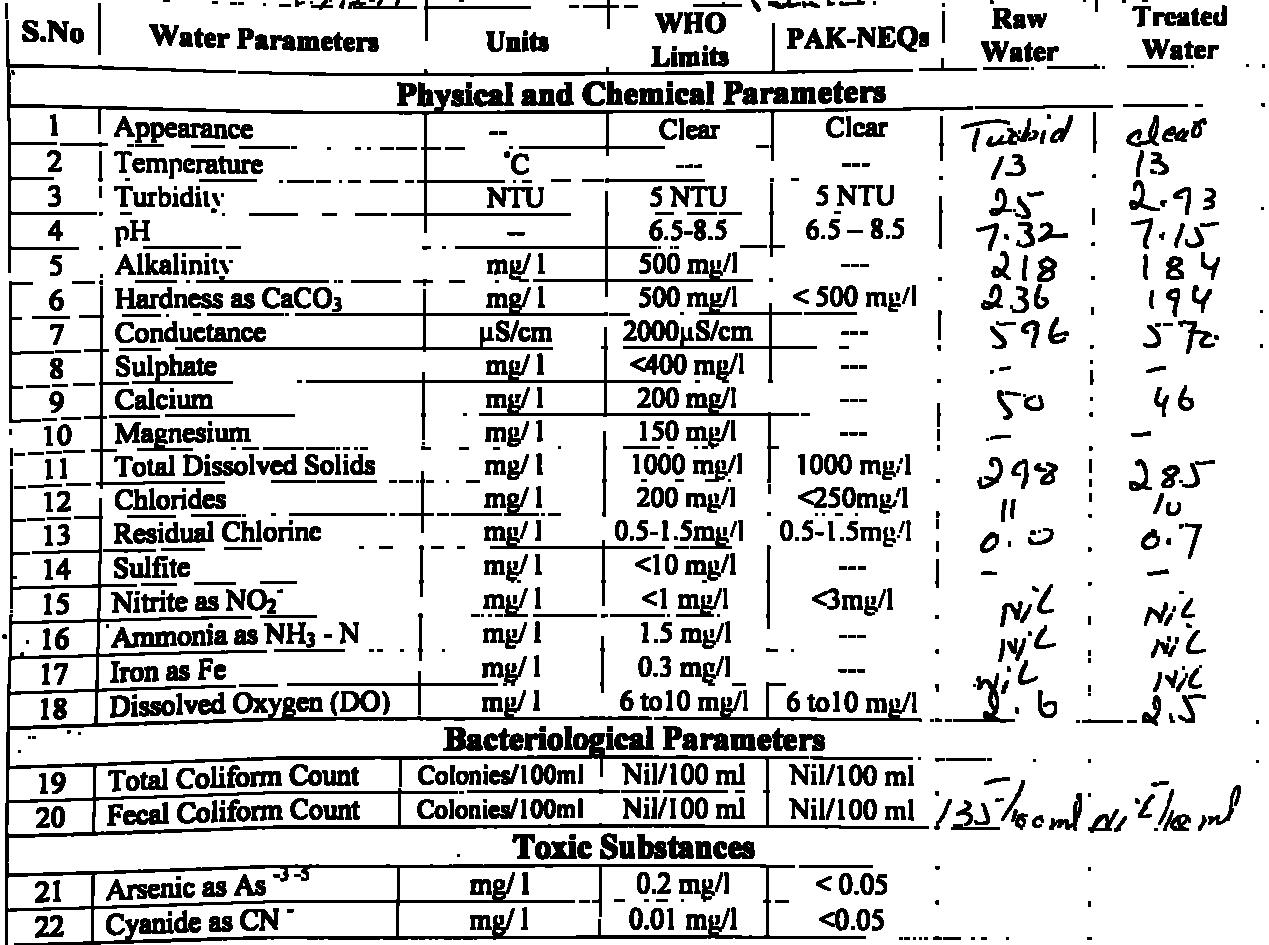 S.No Water Parameters Units WHO Limits PAK-NEQs Raw Water Treated Water
Physical and Chemical Parameters
1 Appearance -- Clear Clear Turbid clear
2 Temperature °C --- --- 13 13
3 Turbidity NTU 5 NTU 5 NTU 25 2.93
4 pH -- 6.5-8.5 6.5 – 8.5 7.32 7.15
5 Alkalinity mg/ l 500 mg/l --- 218 184
6 Hardness as CaCO3 mg/ l 500 mg/l < 500 mg/l 236 194
7 Conductance µS/cm 2000µS/cm --- 596 570
8 Sulphate mg/ l <400 mg/l --- - -
9 Calcium mg/ l 200 mg/l --- 50 46
10 Magnesium mg/ l 150 mg/l --- - -
11 Total Dissolved Solids mg/ l 1000 mg/l 1000 mg/l 298 285
12 Chlorides mg/ l 200 mg/l <250mg/l 11 10
13 Residual Chlorine mg/ l 0.5-1.5mg/l 0.5-1.5mg/l 0.0 0.7
14 Sulfite mg/ l <10 mg/l --- - -
15 Nitrite as NO2- mg/ l <1 mg/l <3mg/l Nil Nil
16 Ammonia as NH3 - N mg/ l 1.5 mg/l --- Nil Nil
17 Iron as Fe mg/ l 0.3 mg/l --- Nil Nil
18 Dissolved Oxygen (DO) mg/ l 6 to10 mg/l 6 to10 mg/l 2.6 2.5
Bacteriological Parameters
19 Total Coliform Count Colonies/100ml Nil/100 ml Nil/100 ml - -
20 Fecal Coliform Count Colonies/100ml Nil/100 ml Nil/100 ml 135/100ml Nil/100 ml
Toxic Substances
21 Arsenic as As -3 -5 mg/ l 0.2 mg/l < 0.05
22 Cyanide as CN - mg/ l 0.01 mg/l <0.05